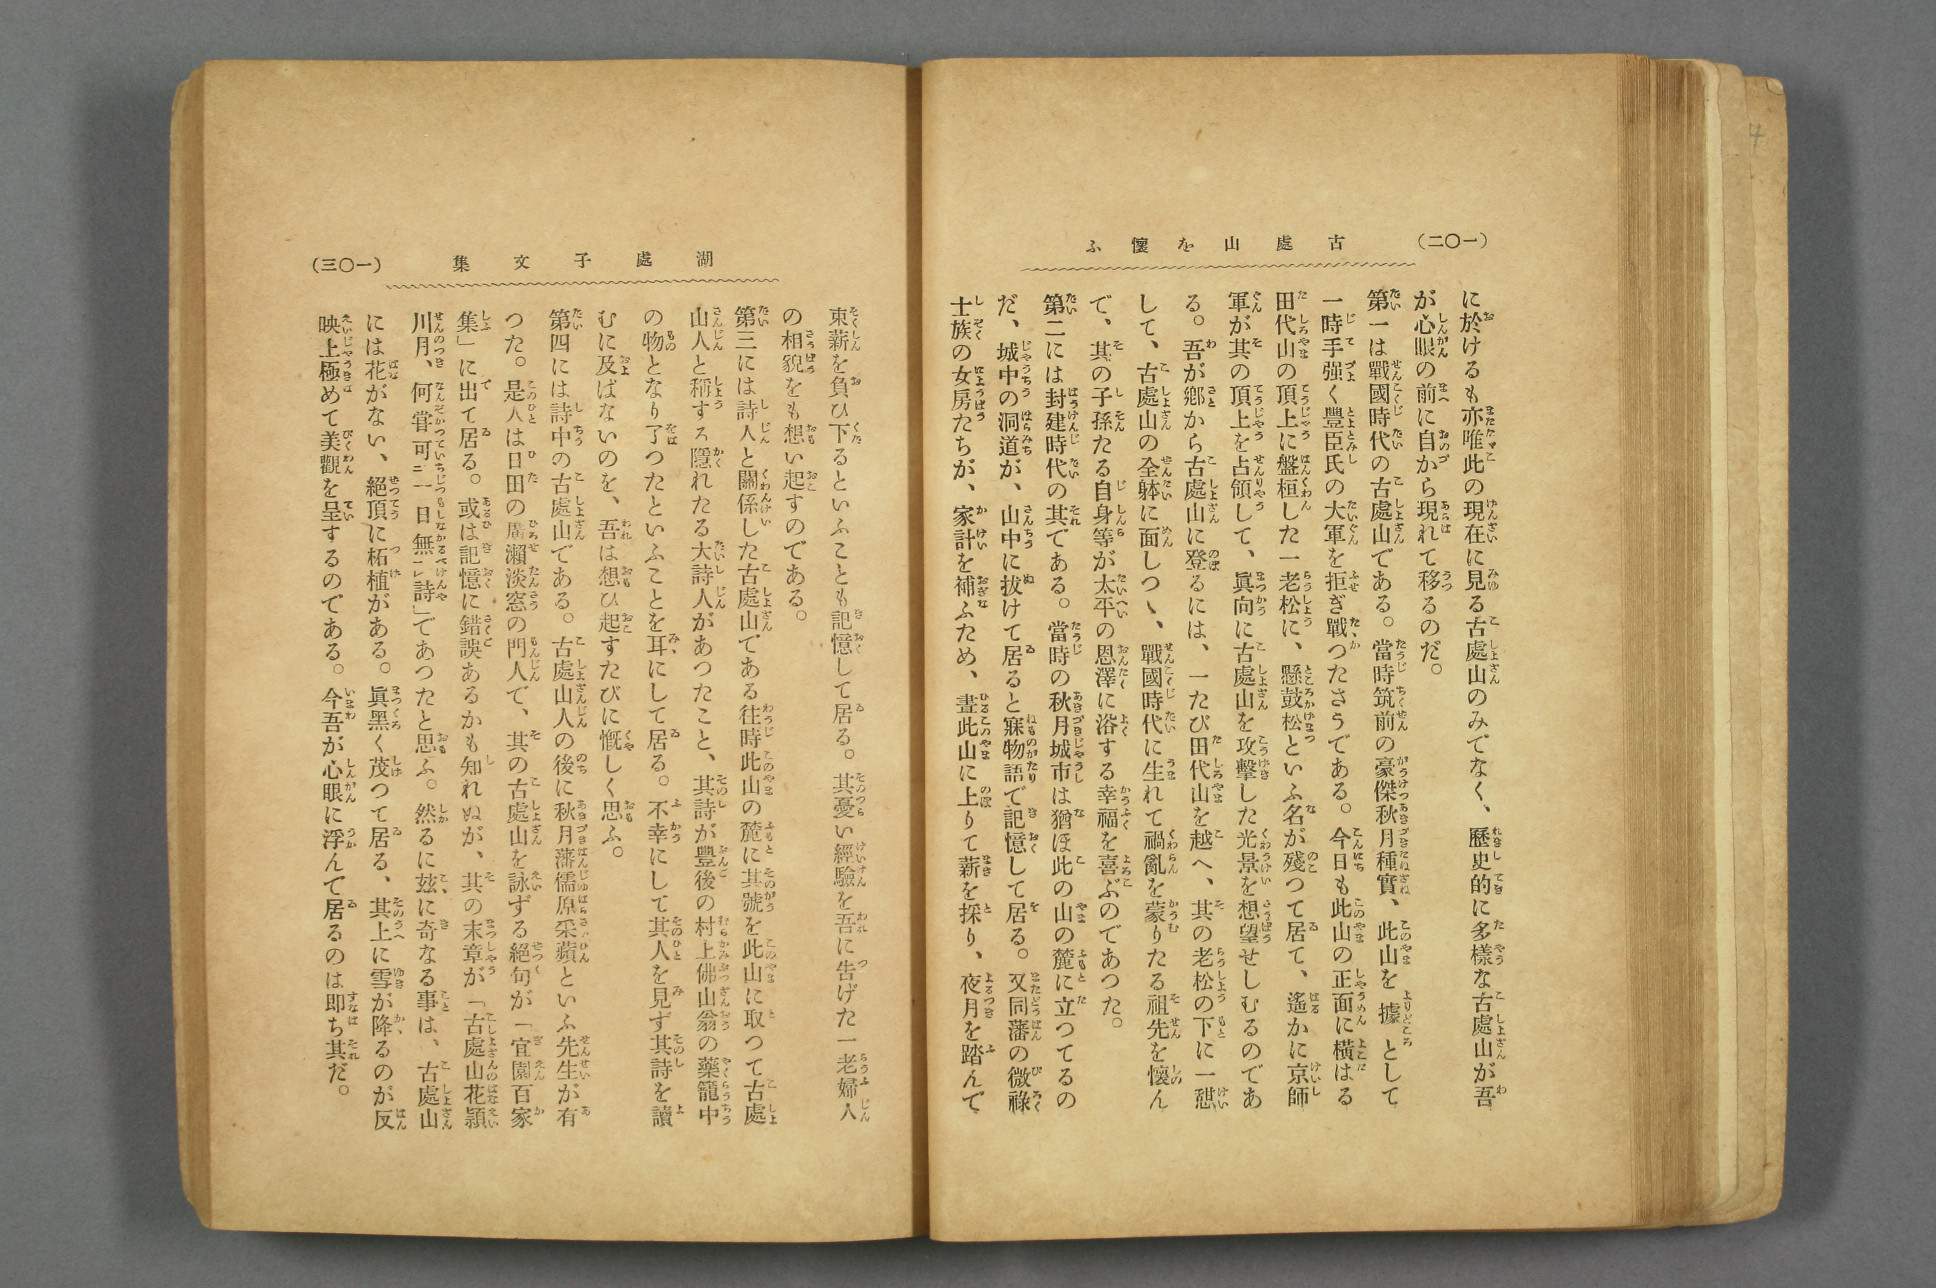 (一〇二)
古處山を懷ふ
に於けるも亦唯此の現在に見る古處山のみでなく、歷史的に多樣な古處山が吾
が心眼の前に自から現れて移るのだ。
第一は戰國時代の古處山である。當時筑前の豪傑秋月種實、此山を據として
一時手強く豐臣氏の大軍を拒ぎ戰つたさうである。今日も此山の正面に橫はる
田代山の頂上に盤桓した一老松に、懸鼓松といふ名が殘つて居て、遙かに京師
軍が其の頂上を占領して、眞向に古處山を攻擊した光景を想望せしむるのであ
る。吾が鄕から古處山に登るには、一たび田代山を越へ、其の老松の下に一憇
して、古處山の全躰に面しつゝ、戰國時代に生れて禍亂を蒙りたる祖先を懷ん
で、其の子孫たる自身等が太平の恩澤に浴する幸福を喜ぶのであつた。
第二には封建時代の其である。當時の秋月城市は猶ほ此の山の麓に立つてるの
だ、城中の洞道が、山中に拔けて居ると寐物語で記憶して居る。又同藩の微祿
士族の女房たちが、家計を補ふため、晝此山に上りて薪を採り、夜月を踏んで
湖處子文集
(一〇三)
束薪を負ひ下るといふことも記憶して居る。其憂い經驗を吾に告げた一老婦人
の相貌をも想い起すのである。
第三には詩人と關係した古處山である往時此山の麓に其號を此山に取つて古處
山人と稱する隱れたる大詩人があつたこと、其詩が豐後の村上佛山翁の藥籠中
の物となり了つたといふことを耳にして居る。不幸にして其人を見ず其詩を讀
むに及ばないのを、吾は想ひ起すたびに慨しく思ふ。
第四には詩中の古處山である。古處山人の後に秋月藩儒原采蘋といふ先生が有
つた。是人は日田の廣瀨淡窓の門人で、其の古處山を詠ずる絕句が「宜園百家
集」に出て居る。或は記憶に錯誤あるかも知れぬが、其の末章が「古處山花潁
川月、何甞可㆓一日無㆒㆑詩」であつたと思ふ。然るに玆に奇なる事は、古處山
には花がない、絕頂に柘植がある。眞黑く茂つて居る、其上に雪が降るのが反
映上極めて美觀を呈するのである。今吾が心眼に浮んで居るのは卽ち其だ。